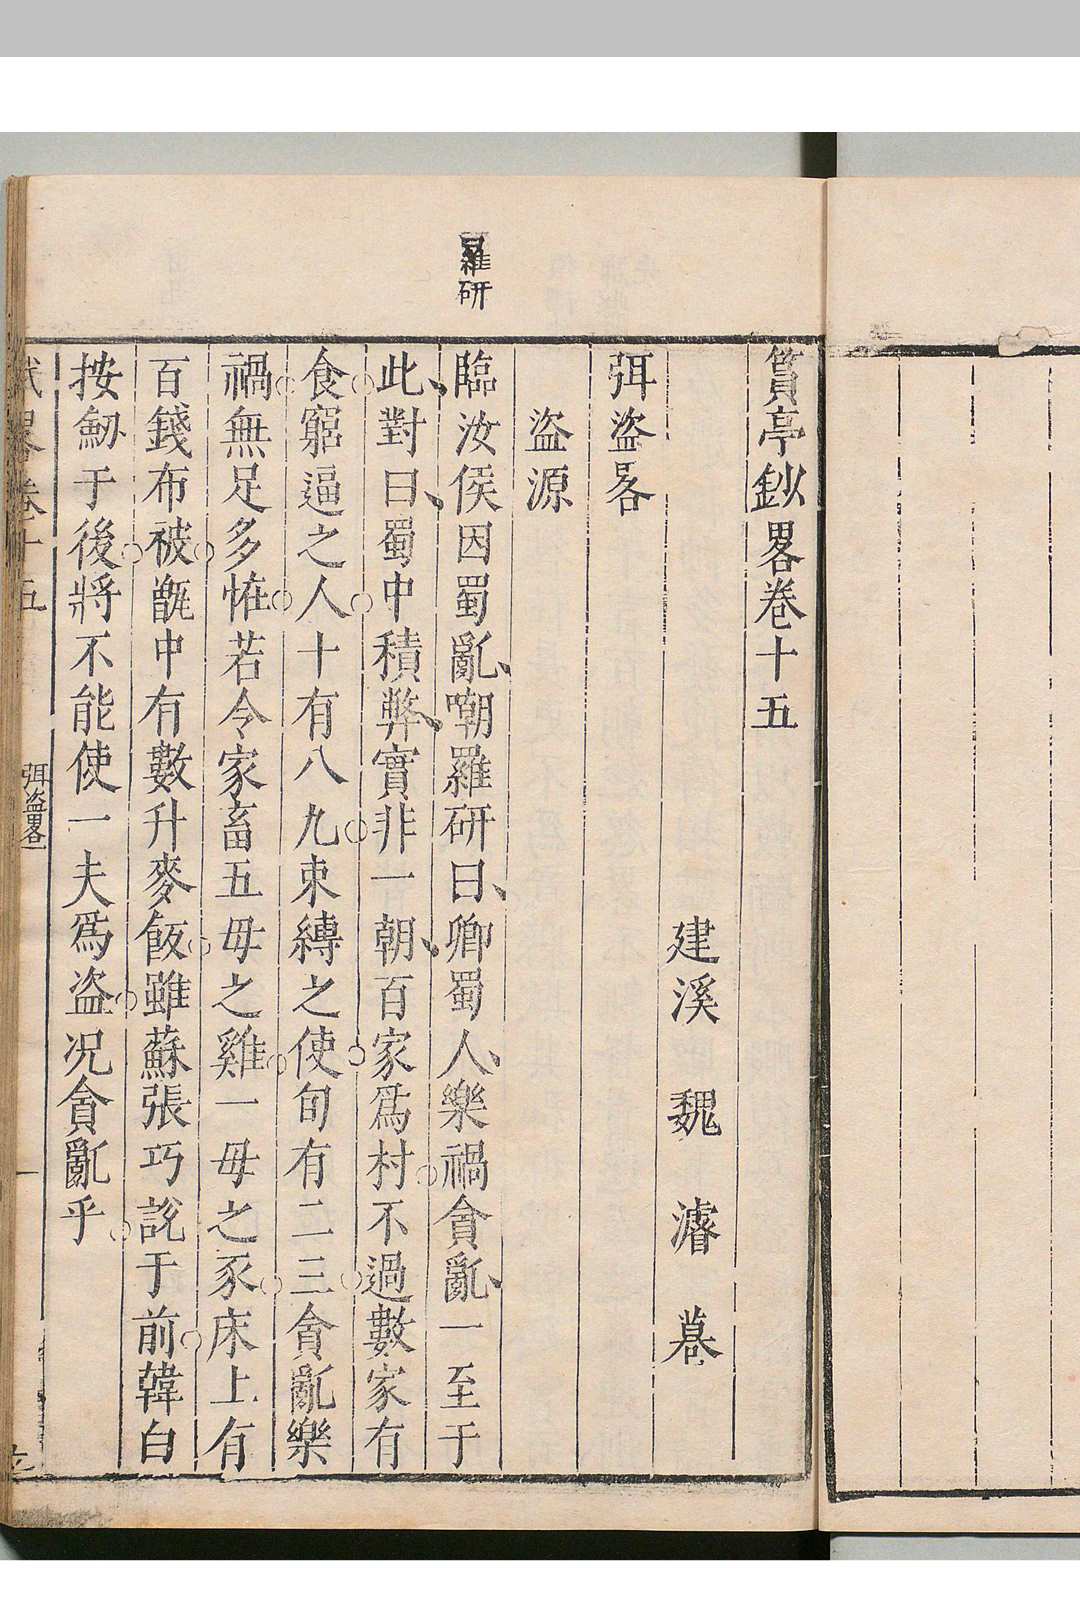 篔亭鈔畧卷十五
建溪 魏 濬 纂
弭盜畧
盜源
羅研
臨汝侯因蜀亂、嘲羅研曰、卿蜀人、樂禍貪亂、一至于
此、對曰、蜀中積弊、實非一朝、百家爲村不過數家有
食窮逼之人十有八九束縛之使旬有二三貪亂樂
禍無足多恠若令家畜五母之雞一母之豕床上有
百錢布被甑中有數升麥飯雖蘇張巧說于前韓白
按劒于後將不能使一夫爲盜况貪亂乎
武畧卷十五 弭盜畧 一